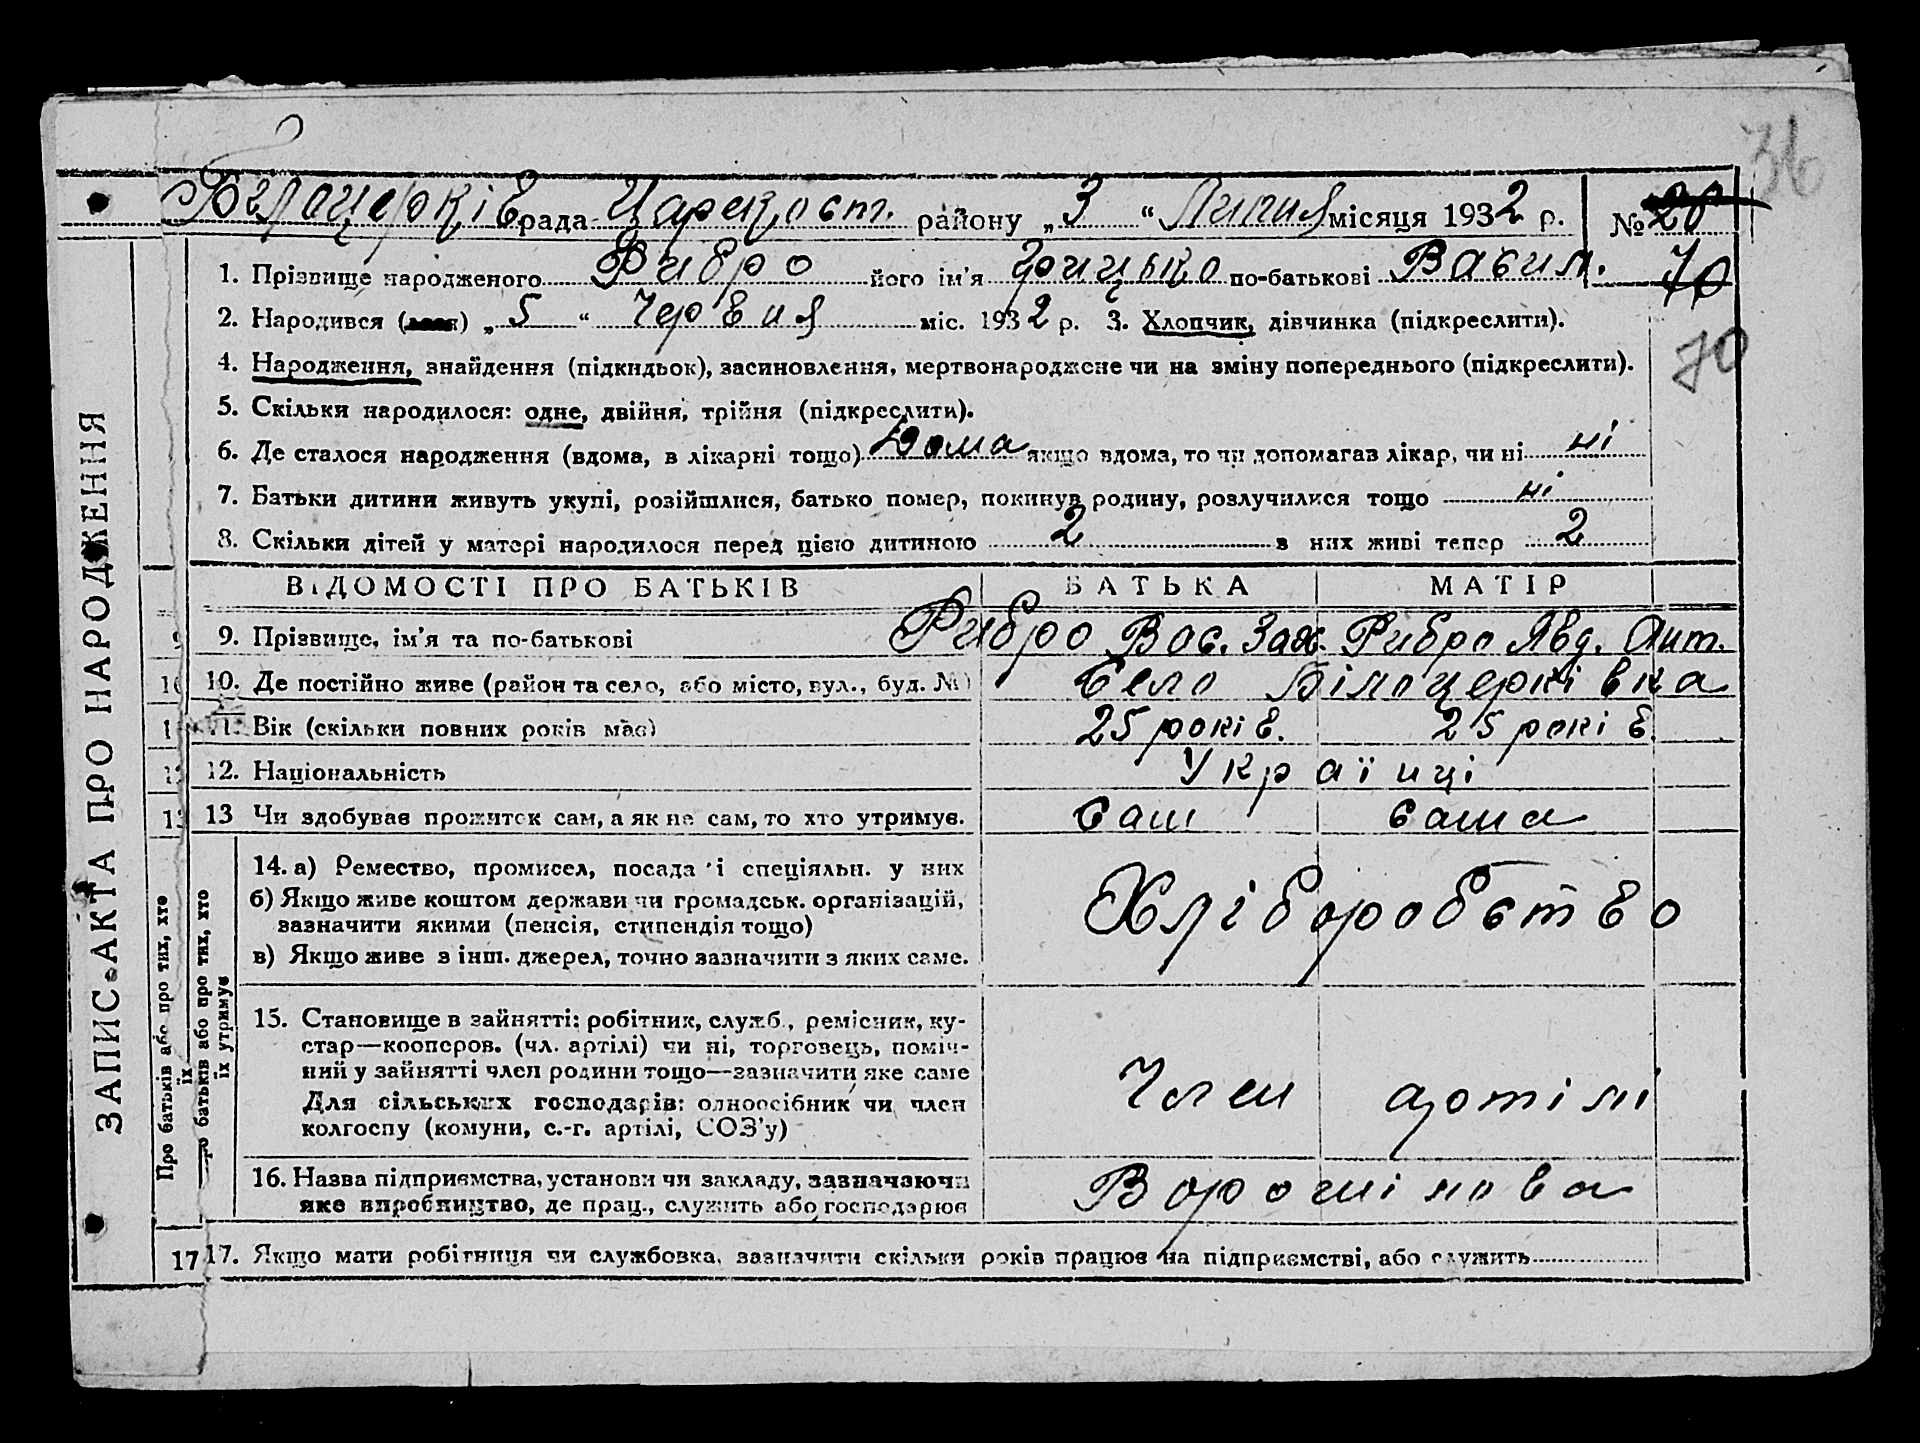 36
Білоцерків рада Царекост. району „ 3 “ Липня місяця 1932 р. № 20
1. Прізвище народженого Рибро його ім'я Грицько по-батькові Васил. 70
2. Народився (лася) „ 5 “ Червня міс. 1932 р. 3. Хлопчик, дівчинка (підкреслити).
70
4. Народження, знайдення (підкидьок), засиновлення, мертвонароджене чи на зміну попереднього (підкреслити).
5. Скільки народилося: одне, двійня, трійня (підкреслити).
6. Де сталося народження (вдома, в лікарні тощо) Дома якщо вдома, то чи допомагав лікар, чи ні ні
7. Батьки дитини живуть укупі, розійшлися, батько помер, покинув родину, розлучилися тощо ні
8. Скільки дітей у матері народилося перед цією дитиною 2 з них живі тепер 2
ВІДОМОСТІ ПРО БАТЬКІВ БАТЬКА МАТІР
9. Прізвище, ім'я та по-батькові Рибро Вас. Зах. Рибро Явд. Ант.
10. Де постійно живе (район та село, або місто, вул., буд. №) Село Білоцерківка
11. Вік (скільки повних років має) 25 років. 25 років.
12. Національність Українці
13 Чи здобував прожиток сам, а як не сам, то хто утримує. Сам сама
14. а) Ремество, промисел, посада і спеціяльн. у них Хліборобство
б) Якщо живе коштом держави чи громадськ. організацій,
зазначити якими (пенсія, стипендія тощо)
в) Якщо живе з інш. джерел, точно зазначити з яких саме.
15. Становище в зайнятті: робітник, служб., ремісник, ку-
стар—коопєров. (чл. артілі) чи ні, торговець, поміч-
ний у зайнятті член родини тощо—зазначити яке саме Член артілі
Для сільських господарів: одноосібник чи член
колгоспу (комуни, с.-г. артілі, СОЗ'у)
16. Назва підприємства, установи чи закладу, зазначаючи Ворошілова
яке виробництво, де прац., служить або господарює
17 17. Якщо мати робітниця чи службовка, зазначити скільки років працює на підприємстві, або служить
ЗАПИС АКТА ПРО НАРОДЖЕННЯ
Про батьків або про тих, хто
їх
Про батьків або про тих, хто
їх утримує